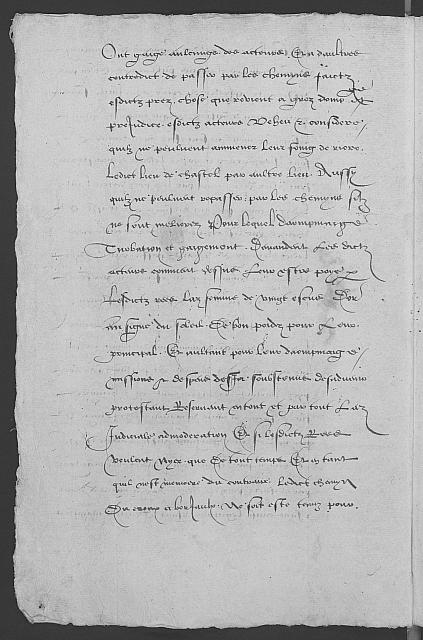 Ont gaigé aulcungs des acteurs, Et a daultres
contredict de passer par les chemyns faictz
esdictz prez, chose que revient a groz domp et
preJudice esdictz acteurs Veheu et consideré
quilz ne peulvent ammener leur foing de
Ledict lieu de chastel par aultre lieu. Aussy
quilz ne peulvent repasser par les chemyns silz
ne sont Pour lequel dompmaige
Turbation et gaigement. Demandent Lesdictz
acteurs comment dessus Leur estre payé
Lesdictz rees La somme de vingt escus Dor
au signe du soleil. De bon poidz pour Leur
principal. Et aultant pour leur dompmaige
missions et despens soubstenus
protestant Reservant en tout et par tout La
Judiciale admoderation Et si lesdictz Rees
veulent Nyer que De tout temps Et en tant
quil nest memoire du contraire. Ledict chemyn
Du Ne soit este tenu pour